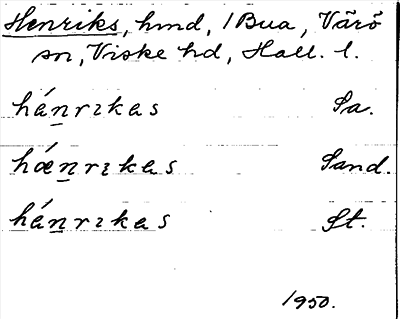 Henriks, hmd, 1 Bua, Värö
sn, Viske hd, Hall. l.
hánrɩkas Sa.
hǽnrɩkas Sand.
hánrɩkas St.
1950.